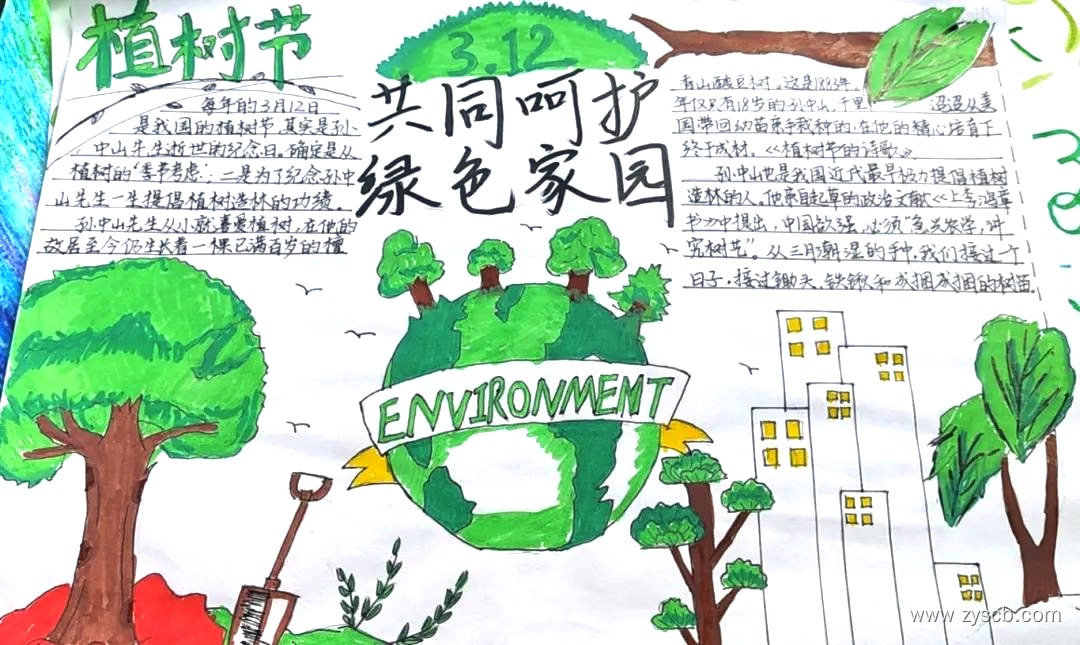 植树节
3.12
共同呵护
绿色家园
每年的3月12日
是我国的植树节,其实是孙
中山先生逝世的纪念日。确定是从
植树的“季节考虑”;二是为了纪念孙中
山先生一生提倡植树造林的功绩。
孙中山先生从小就喜爱植树,在他的
故居至今仍生长着一棵已满百岁的檀
青山酸豆树。这是1883年
年仅只有18岁的孙中山,千里 迢迢从美
国带回幼苗亲手栽种的,在他的精心培育下
终于成材。《植树节的诗歌》
孙中山也是我国近代最早极力提倡植树
造林的人。他亲自起草的政治文献《上李鸿章
书》中提出,中国欲强,必须“急兴农学,讲
究树艺”。从三月潮湿的手中,我们接过一个
日子,接过锄头,铁锹和成捆成捆的树苗。
ENVIRONMEMT
www.zyscb.com